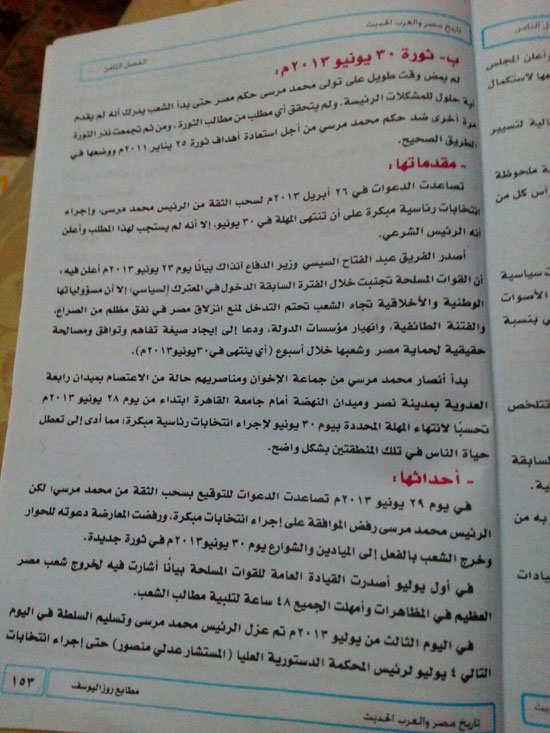 تاريخ مصر والعرب الحديث
الفصل الثامن
ب- ثورة ٣٠ يونيو ٢٠١٣م:
لم يمض وقت طويل على تولى محمد مرسى حكم مصر حتى بدأ الشعب يدرك أنه لم يقدم
أية حلول للمشكلات الرئيسة، ولم يتحقق أي مطلب من مطالب الثورة . ومن ثم تجمعت نذر الثورة
مرة أخرى ضد حكم محمد مرسي من أجل استعادة أهداف ثورة ٢٥ يناير ٢٠١١م ووضعها في
الطريق الصحيح.
- مقدماتها:
تصاعدت الدعوات في ٢٦ أبريل ٢٠١٣م لسحب الثقة من الرئيس محمد مرسى، وإجراء
انتخابات رئاسية مبكرة على أن تنتهى المهلة في ٣٠ يونيو، إلا أنه لم يستجب لهذا المطلب وأعلن
أنه الرئيس الشرعي.
أصدر الفريق عبد الفتاح السيسي وزير الدفاع آنذاك بيانًا يوم ٢٣ يونيو ٢٠١٣م أعلن فيه،
أن القوات المسلحة تجنبت خلال الفترة السابقة الدخول في المعترك السياسي؛ إلا أن مسؤولياتها
الوطنية والأخلاقية تجاه الشعب تحتم التدخل لمنع انزلاق مصر في نفق مظلم من الصراع،
والفتنة الطائفية، وانهيار مؤسسات الدولة، ودعا إلى إيجاد صيغة تفاهم وتوافق ومصالحة
حقيقية لحماية مصر وشعبها خلال أسبوع (أي ينتهى في ٣٠ يونيو ٢٠١٣م).
بدأ أنصار محمد مرسي من جماعة الإخوان ومناصريهم حالة من الاعتصام بميدان رابعة
العدوية بمدينة نصر وميدان النهضة أمام جامعة القاهرة ابتداء من يوم ٢٨ يونيو ٢٠١٣م
تحسبًا لانتهاء المهلة المحددة بيوم ٣٠ يونيو لإجراء انتخابات رئاسية مبكرة؛ مما أدى إلى تعطل
حياة الناس في تلك المنطقتين بشكل واضح.
- أحداثها:
في يوم ٢٩ يونيو ٢٠١٣م تصاعدت الدعوات للتوقيع بسحب الثقة من محمد مرسي؛ لكن
الرئيس محمد مرسى رفض الموافقة على إجراء انتخابات مبكرة، ورفضت المعارضة دعوته للحوار
وخرج الشعب بالفعل إلى الميادين والشوارع يوم ٣٠ يونيو ٢٠١٣م في ثورة جديدة.
في أول يوليو أصدرت القيادة العامة للقوات المسلحة بيانًا أشارت فيه لخروج شعب مصر
العظيم في المظاهرات وأمهلت الجميع ٤٨ ساعة لتلبية مطالب الشعب.
في اليوم الثالث من يوليو ٢٠١٣م تم عزل الرئيس محمد مرسى وتسليم السلطة في اليوم
التالي ٤ يوليو لرئيس المحكمة الدستورية العليا (المستشار عدلي منصور) حتى إجراء انتخابات
تاريخ مصر والعرب الحديث
مطابع روزاليوسف
١٥٣
وأعلن المجلس
لاستكمال
لتسيير
ملحوظة
كل من
سياسية
الأصوات
بنسبة
تتلخص
السابقة
به من